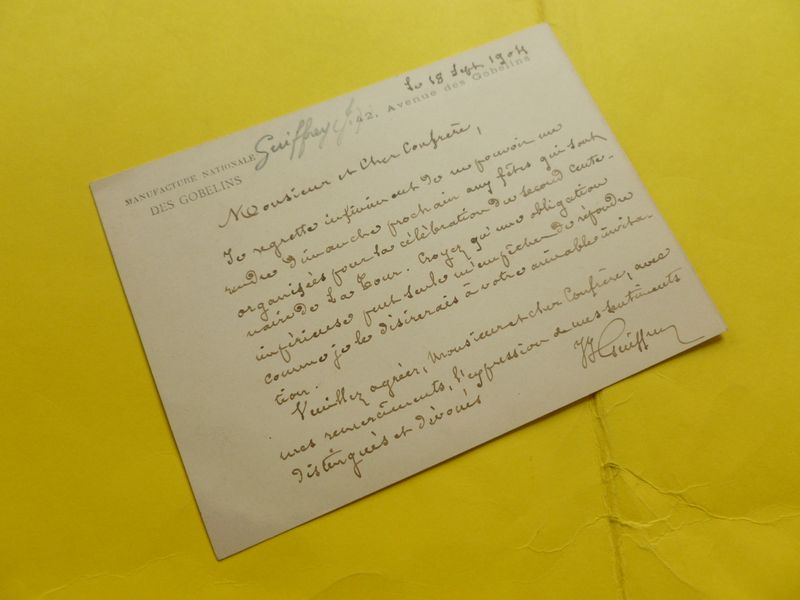 MANUFACTURE NATIONALE
DES GOBELINS
Guiffrey (J.)
Le 18 Sept 1904
42, Avenue des Gobelins
Monsieur et Cher Confrère,
Je regrette infiniment de ne pouvoir me
rendre dimanche prochain aux fêtes qui sont
organisées pour la célébration du second cente-
naire de La Tour. Croyez qu'une obligation
impérieuse peut seule m'empêcher de répondre
comme je le désirerais à votre aimable invita-
tion.
Veuillez agréer, Monsieur et cher Confrère, avec
mes remerciements, l'expression de mes sentiments
distingués et dévoués
JJ Guiffrey